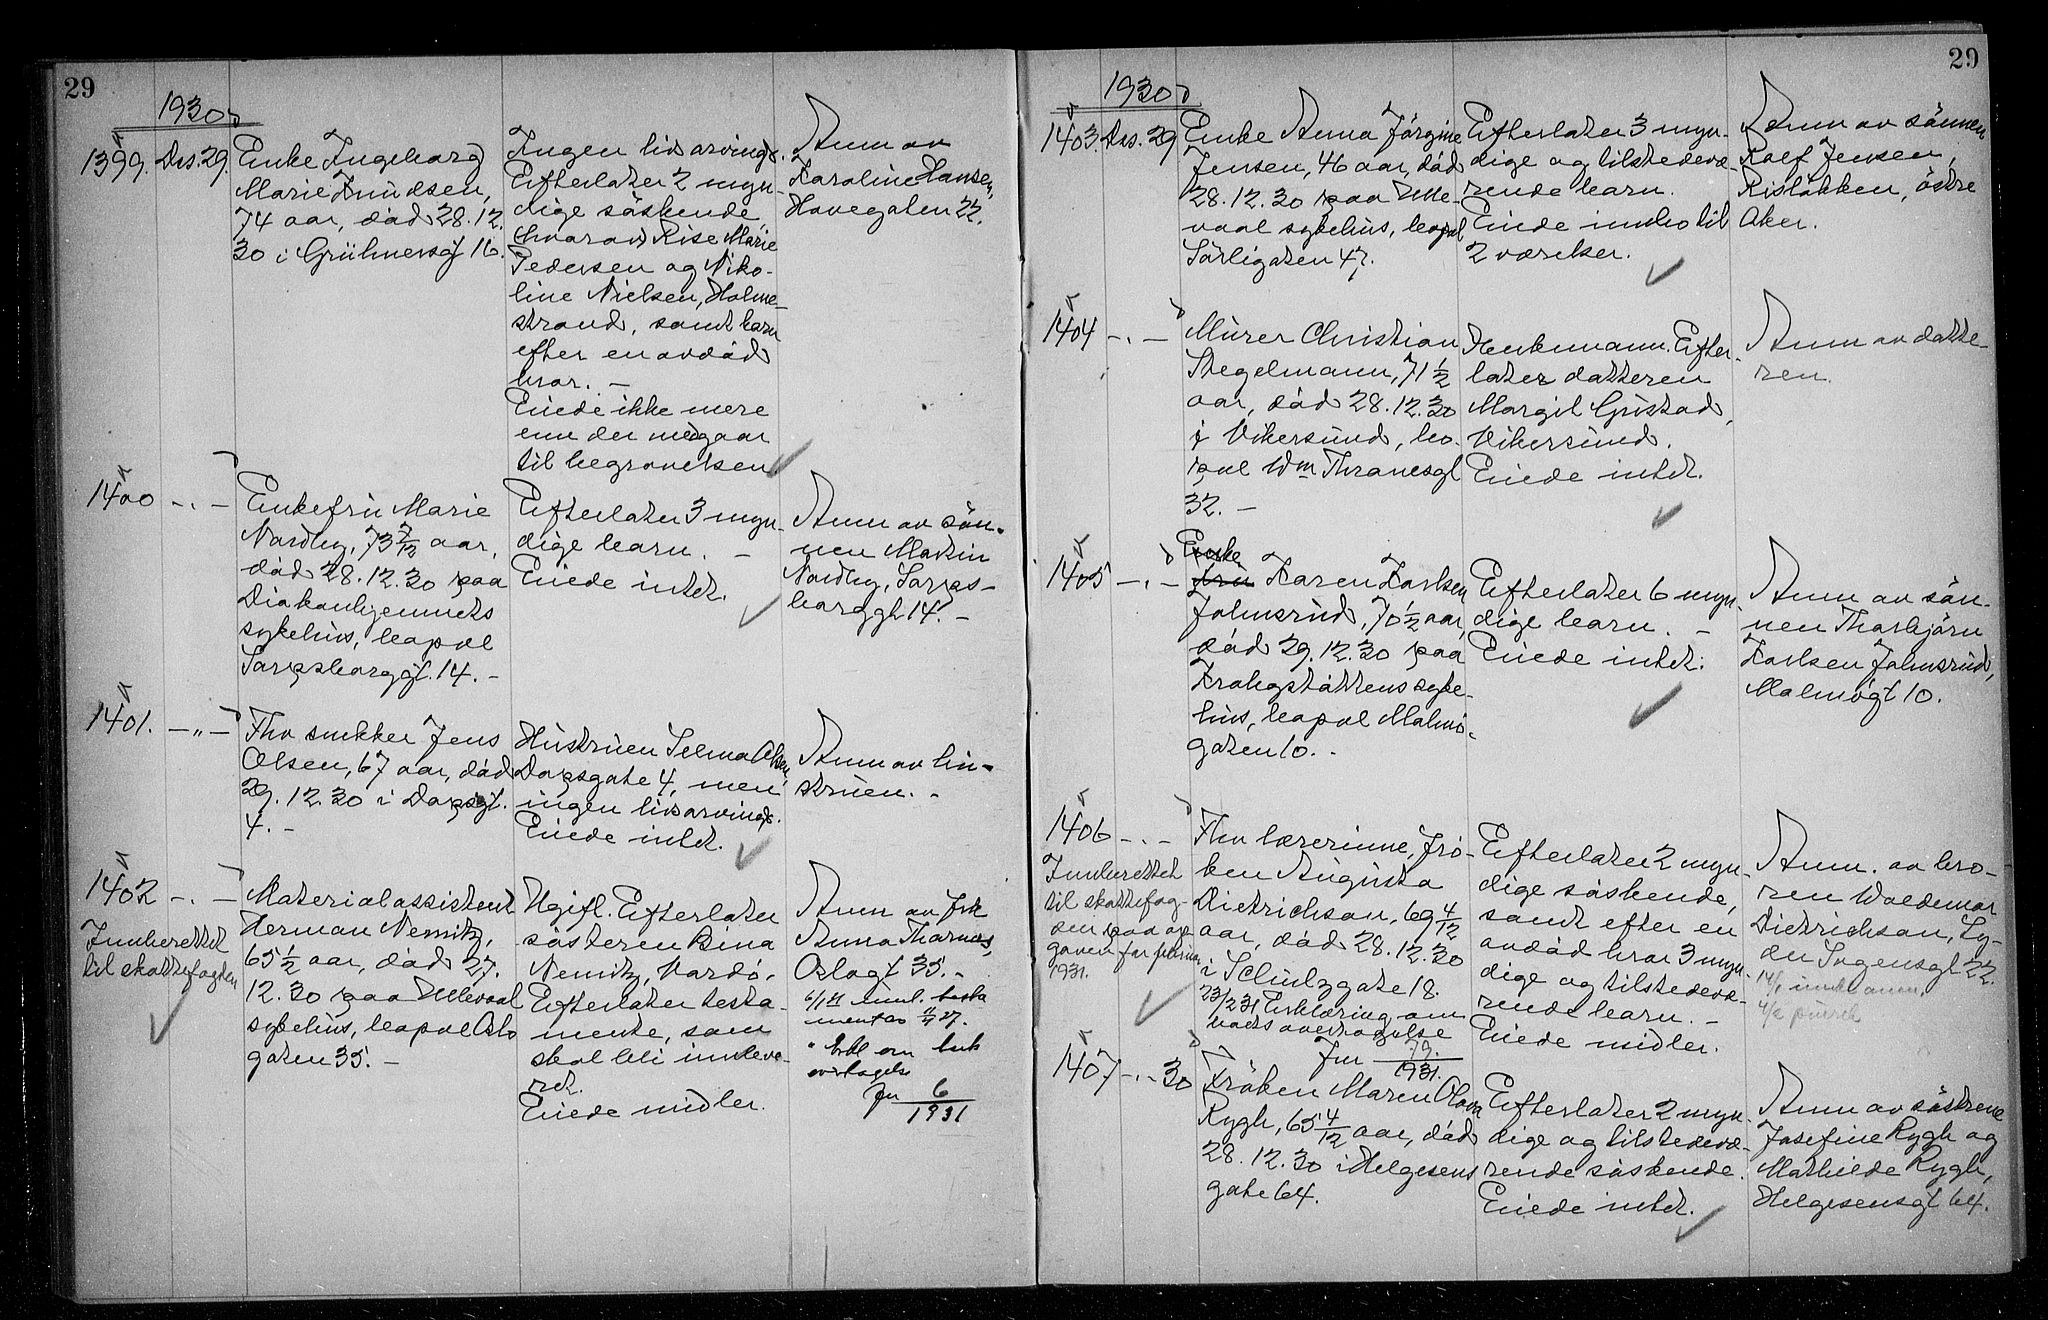 29
1930
1399. Des. 29.
Enke Ingeborg
Marie Knudsen,
74 aar, død 28.12.
30 i Grünersgt 16.
Ingen livsarving.
Efterlater 2 myn-
dige søskende
hvorav Rise Marie
Pedersen og Niko-
line Nielsen, Holme-
strand, samt barn
efter en avdød
bror. –
Eiede ikke mere
enn der medgaar
til begravelsen.
Anm av
Karoline Hansen,
Havegaten 22.
1400 -.-
Enkefru Marie
Nordby, 73 7/12 aar,
død 28.12.30 paa
Diakonhjemmets
sykehus, bopæl
Sarpsborggt. 14. –
Efterlater 3 myn-
dige barn. –
Eiede intet.
Anm av søn-
nen Martin
Nordby, Sarps-
borggt 14. –
1401. -„-
Fhv snekker Jens
Olsen, 67 aar, død
29.12.30 i Dapsgt.
4. –
Hustruen Selma Olsen,
Dapsgate 4, men
ingen livsarving.
Eiede intet.
Anm av hu-
struen. –
1402 -.-
Innberettet
til skattefogden
Materialassistent
Herman Nemitz,
65 1/2 aar, død 27.
12.30 paa Ullevaal
sykehus, bopæl Oslo
gaten 35. –
Ugift. Efterlater
søsteren Bina
Nemitz, Vardø.
Efterlater testa-
mente, som
skal bli innleve-
ret.
Eiede midler.
Anm av frk
Anna Thornes,
Oslogt 35. –
6/1 31 innl. testa
mente
" Erkl om bobs
overtagelse
Jnr 6/1931
29
1930
1403. Des. 29
Enke Anna Jørgine
Jensen, 46 aar, død
28.12.30 paa Ulle-
vaal sykehus, bopæl
Sørligaten 47.
Efterlater 3 myn-
dige og tilstedevæ-
rende barn.
Eiede innbo til
2 værelser.
Anm av sønnen
Rolf Jensen,
Risløkken, østre
Aker.
1404 -.-
Murer Christian
Stegelmann, 71 1/2
aar, død 28.12.30
i Vikersund, bo-
pæl Wm Thranesgt
32. –
Enkemann. Efter-
later datteren
Margit Gustad,
Vikersund.
Eiede intet.
Anm av datte-
ren.
1405 -.-
Enke
fru Karen Karlsen
Johnsrud, 70 1/2 aar,
død 29.12.30 paa
Krohgstøttens syke-
hus, bopæl Malmø-
gaten 10. –
Efterlater 6 myn-
dige barn. –
Eiede intet.
Anm av søn-
nen Thorbjørn
Karlsen Johnsrud,
Malmøgt 10.
1406 -.-
Innberettet
til skattefog-
den paa op-
gaven for februar
1931.
Fhv lærerinne, frø-
ken Augusta
Dietrichson, 69 4/12
aar, død 28.12.30
i Schulzgate 18.
23/2 31 Erklæring om
boets overtagelse
Jnr 79./1931.
Efterlater 2 myn-
dige søskende,
samt efter en
avdød bror 3 myn-
dige og tilstedevæ-
rende barn. –
Eiede midler.
Anm. av bro-
ren Woldemar
Dietrichson, Ly-
der Sagensgt 22.
14/1 innk anm.
4/2 purret
1407 -.- 30
Frøken Maren Olava
Rygh, 65 4/12 aar, død
28.12.30 i Helgesens
gate 64.
Efterlater 2 myn-
dige og tilstedevæ-
rende søskende.
Eiede intet.
Anm av søstrene
Josefine Rygh og
Mathilde Rygh,
Helgesensgt 64.